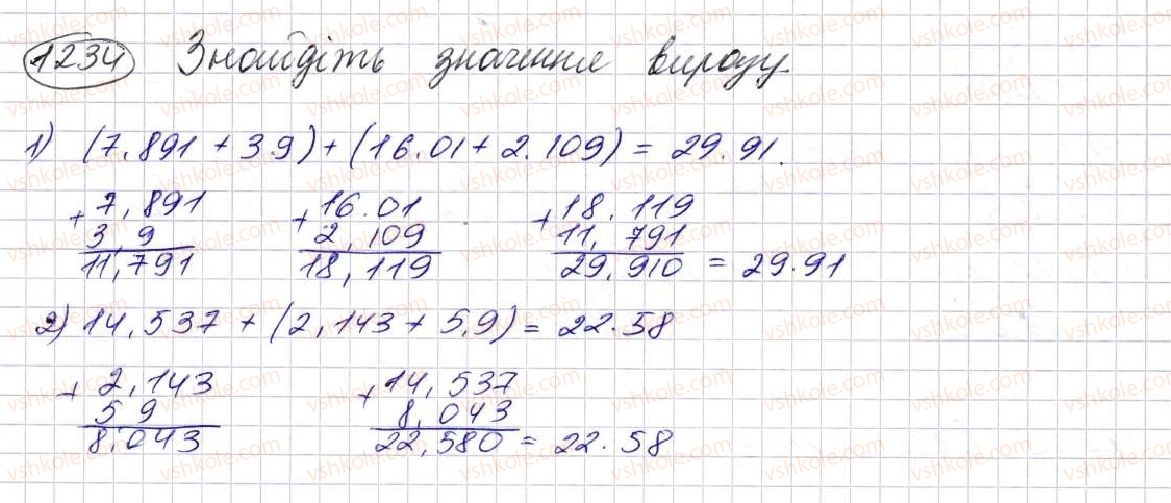 1234 Знайдіть значення виразу.
1) (7.891 + 3.9) + (16.01 + 2.109) = 29.91.
+ 7,891 + 16.01 + 18.119
3,9 2,109 11,791
11,791 18,119 29,910 = 29.91
2) 14,537 + (2,143 + 5,9) = 22.58
+ 2,143 + 14,537
5 9 8,043
8,043 22,580 = 22.58
vshkole.com